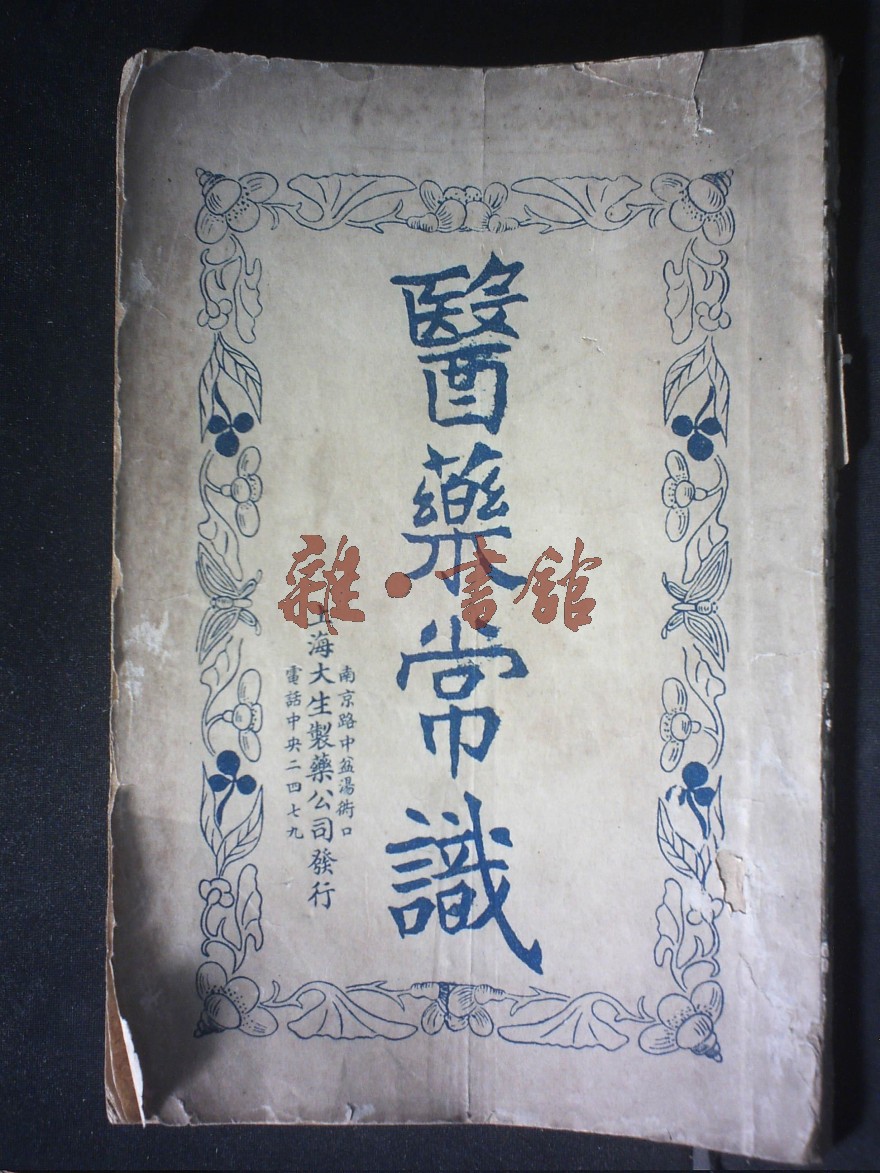 醫藥常識
南京路中盆湯衖口
上海大生製藥公司發行
電話中央二四七九
雜·書館